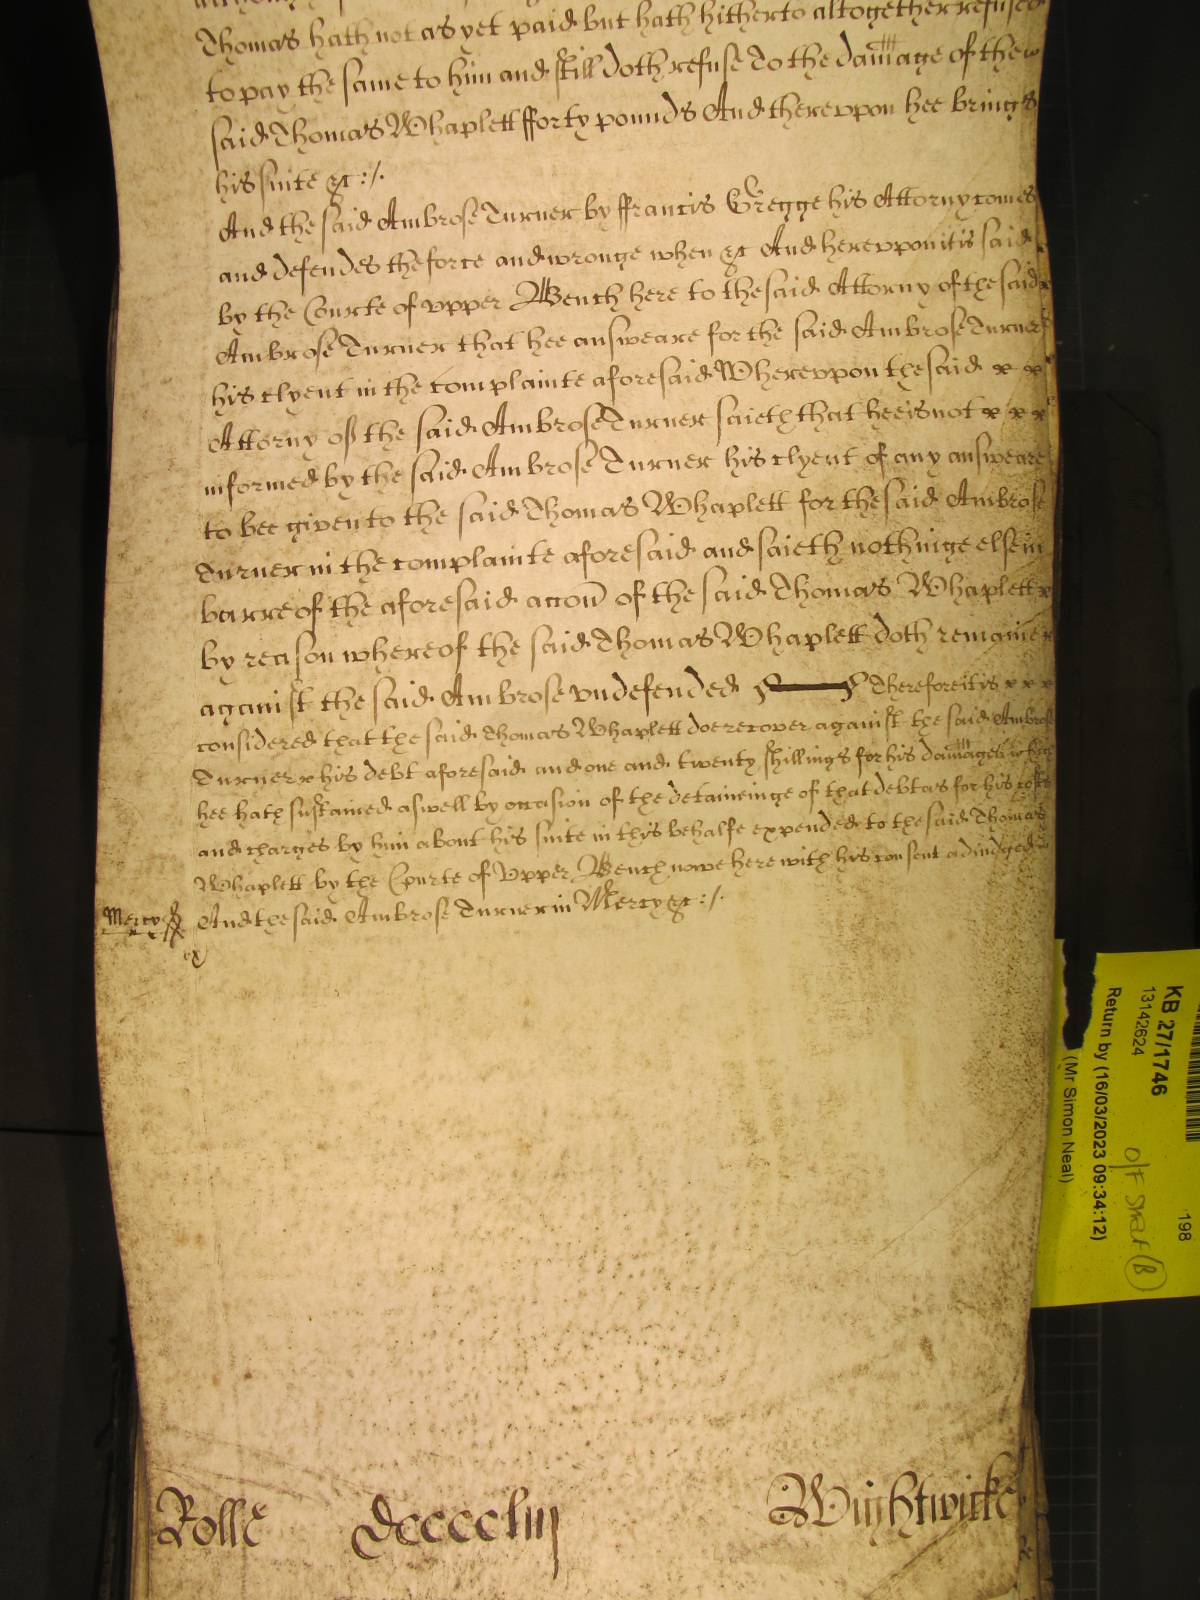 Thomas hath not as yet paid but hath hitherto altogether refused
to pay the same to him and still doth refuse To the dam̄age of the
said Thomas Whaplett fforty pounds And therevpon hee brings
his suite &c:/.
And the said Ambrose Turner by ffrancis Gregge his Attorny comes
and defendes the force and wronge when &c And herevpon it is said
by the Courte of vpper Bench here to the said Attorny of the said
Ambrose Turner that hee answeare for the said Ambrose Turner
his clyent in the complainte aforesaid Wherevpon the said x x
Attorny of the said Ambrose Turner saieth that hee is not x x x
informed by the said Ambrose Turner his clyent of any answeare
to bee given to the said Thomas Whaplett for the said Ambrose
Turner in the complainte aforesaid and saieth nothinge else in
barre of the aforesaid accoñ of the said Thomas Whaplett x
by reason whereof the said Thomas Whaplett doth remaine x
against the said Ambrose vndefended Therefore it is x x x
considered that the said Thomas Whaplett doe recover against the said Ambrose
Turner x his debt aforesaid and one and twenty shillings for his dam̄ages which
hee hath sustained aswell by occasion of the detaineinge of that debt as for his costs
and charges by him about his suite in this behalfe expended to the said Thomas
Whaplett by the Courte of Vpper Bench nowe here with his consent adiudged
Mercy
And the said Ambrose Turner in Mercy &c:/.
Rolle Dccccliij Wightwicke
KB 27/1746
13142624
Return by (16/03/2023 09:34:12)
(Mr Simon Neal)
198